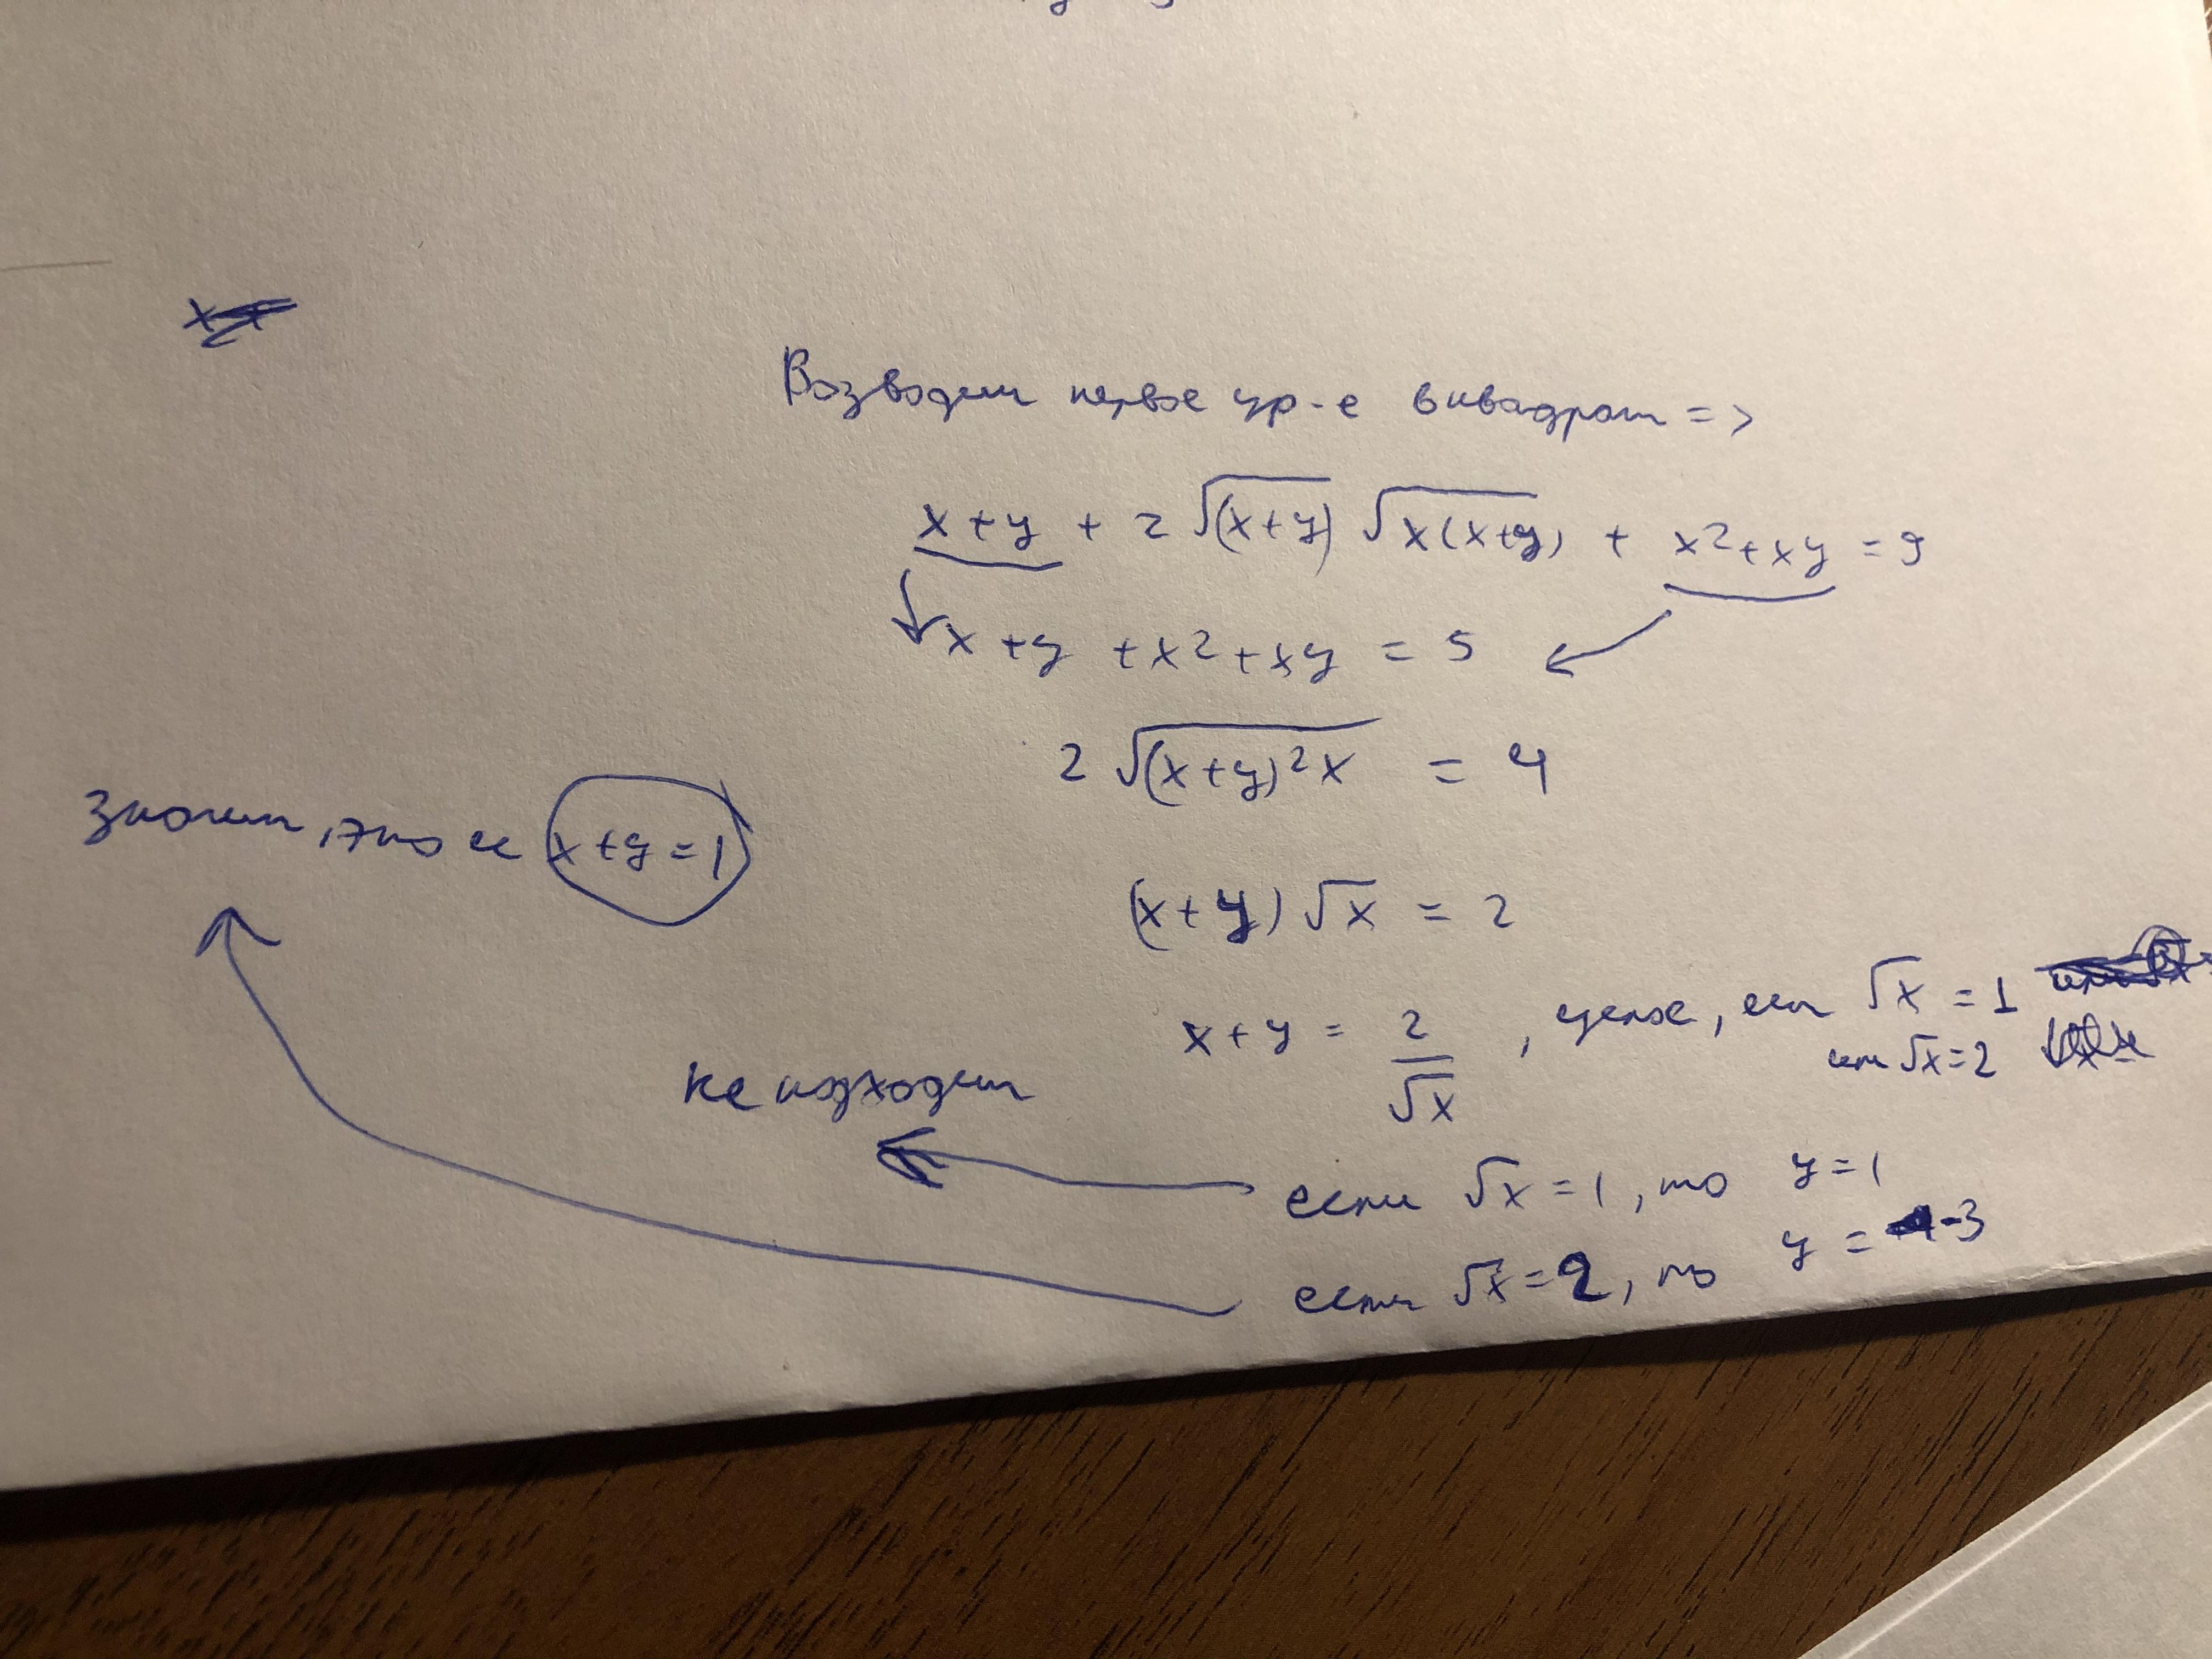 Возводим первое ур-е в квадрат =>
x + y + 2 √(x+y) √x(x+y) + x2+xy = 9
x + y + x2 + xy = 5
2 √(x+y)2x = 4
Значит, это x+y=1
(x+y) √x = 2
x + y = 2/√x , целое, если √x = 1
или √x=2
не подходит
если √x = 1, то y = 1
если √x = 2, то y = -3